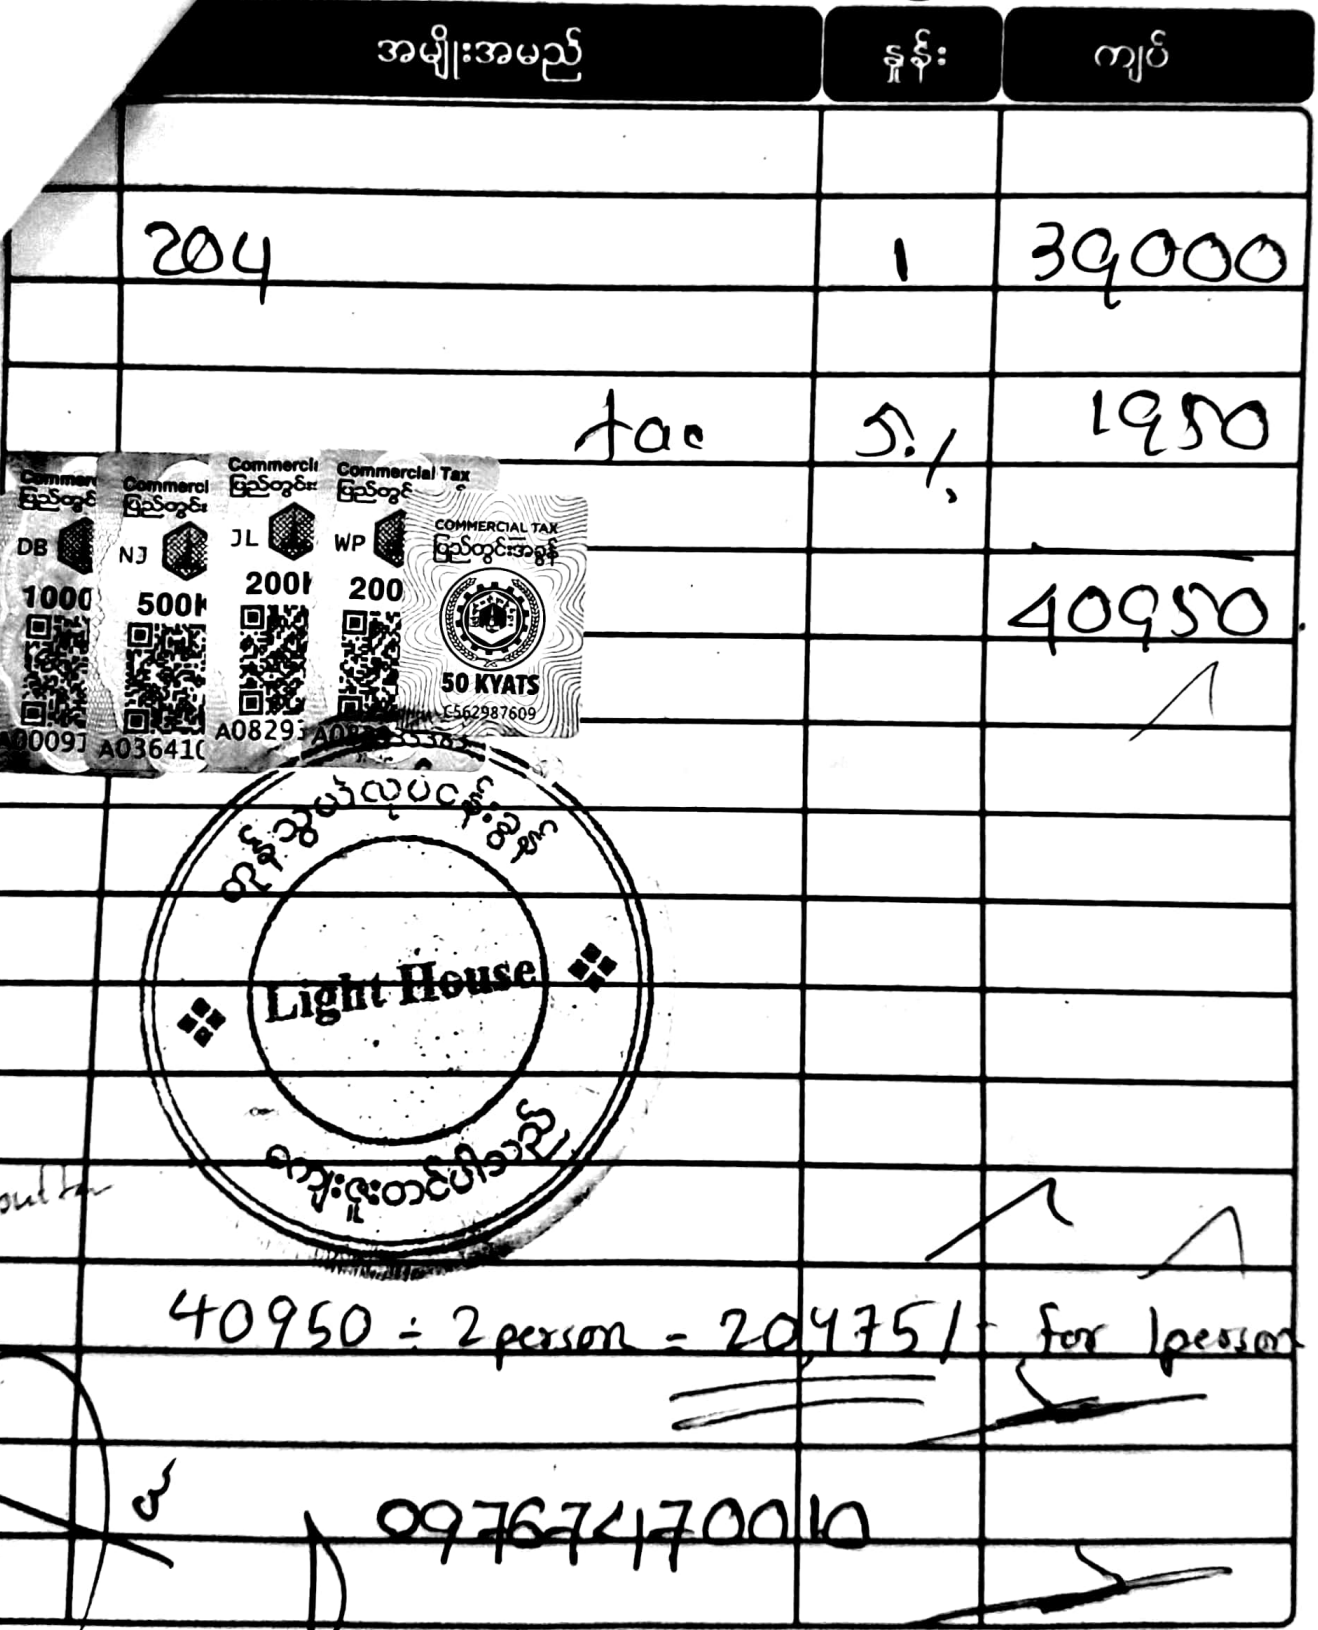 အမျိုးအမည် နှုန်း ကျပ်
204 1 39000
tac 5.% 1950
Commercial Tax
ပြည်တွင်း
DB
1000
Commercial
ပြည်တွင်း
NJ
500K
A03641
Commercial
ပြည်တွင်း
JL
200K
A08293
Commercial Tax
ပြည်တွင်း
WP
200
COMMERCIAL TAX
ပြည်တွင်းအခွန်
50 KYATS
C562987609
40950
ကုန်သွယ်လုပ်ငန်းခွန်
Light House
ကျေးဇူးတင်ပါသည်
40950 ÷ 2 person = 20,475/- for 1 person
09767470010